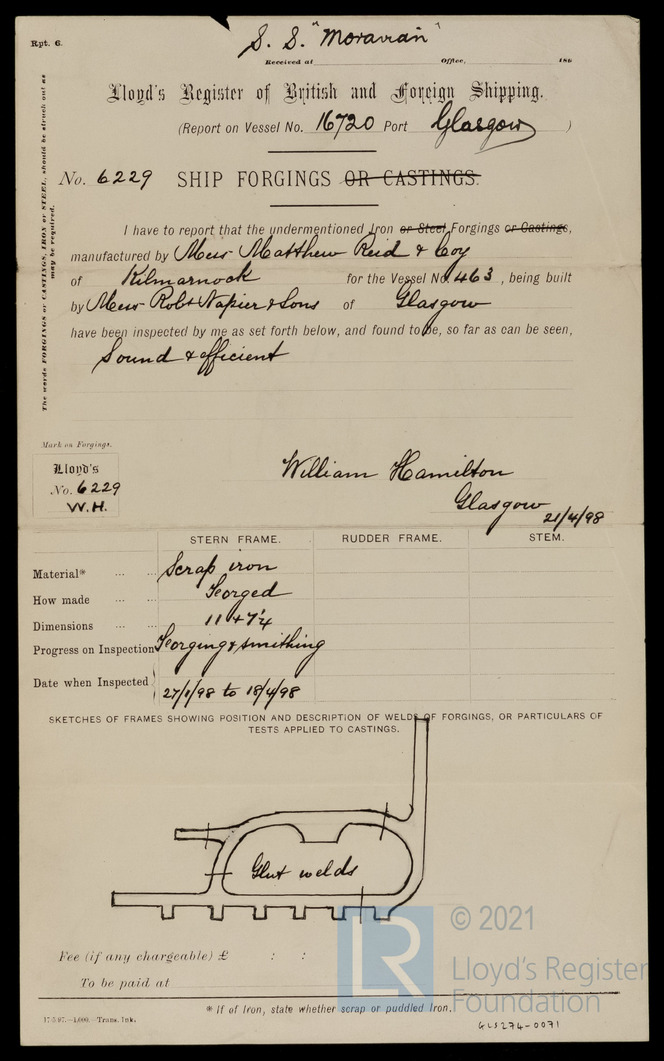 S. S. "Moravian"
Rpt. 6.
Received at Office, 186
Lloyd's Register of British and Foreign Shipping.
(Report on Vessel No. 16720 Port Glasgow )
No. 6229 SHIP FORGINGS OR CASTINGS.
The words FORGINGS or CASTINGS, IRON or STEEL, should be struck out as may be required.
I have to report that the undermentioned Iron or Steel Forgings or Castings,
manufactured by Messrs Matthew Reid & Coy
of Kilmarnock for the Vessel No. 463, being built
by Messrs Robt Napier & Sons of Glasgow
have been inspected by me as set forth below, and found to be, so far as can be seen,
Sound & efficient
Mark on Forgings.
Lloyd's
No. 6229
W.H.
William Hamilton
Glasgow
21/4/98
STERN FRAME. RUDDER FRAME. STEM.
Material* ... ... Scrap iron
How made ... ... Forged
Dimensions ... ... 11 + 7¼
Progress on Inspection Forging & smithing
Date when Inspected 27/1/98 to 18/4/98
SKETCHES OF FRAMES SHOWING POSITION AND DESCRIPTION OF WELDS OF FORGINGS, OR PARTICULARS OF
TESTS APPLIED TO CASTINGS.
Glut welds
Fee (if any chargeable) £ : :
To be paid at
* If of Iron, state whether scrap or puddled Iron.
17.5.97.—1,000.—Trans. Ink.
GLS274-0071
LR
© 2021
Lloyd's Register
Foundation